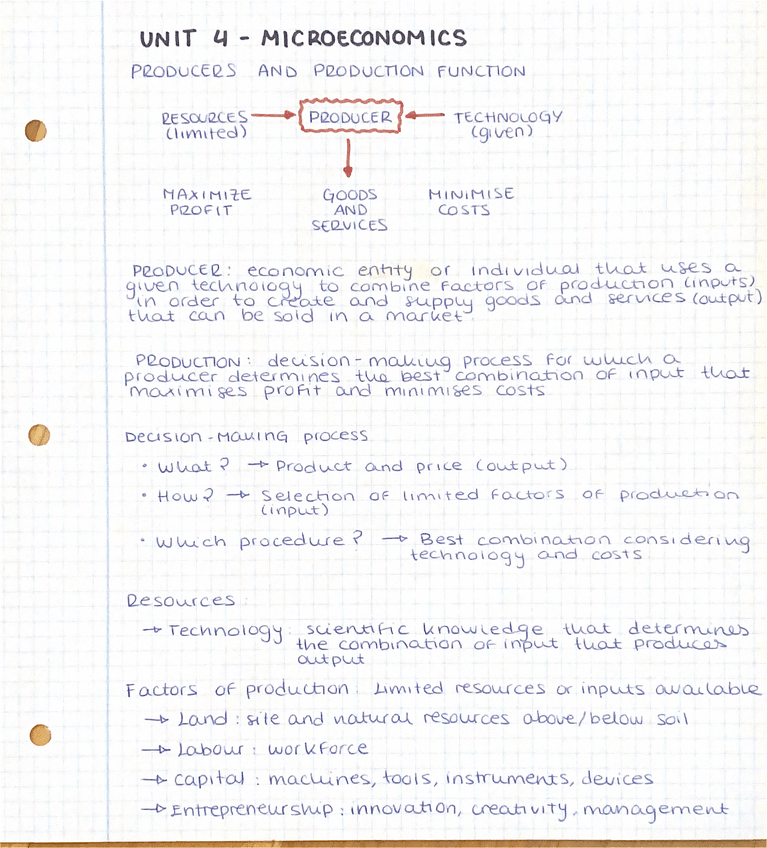 UNIT 4 - MICROECONOMICS
PRODUCERS AND PRODUCTION FUNCTION
RESOURCES → PRODUCER ← TECHNOLOGY
(limited) (given)
MAXIMIZE GOODS MINIMISE
PROFIT AND COSTS
SERVICES
PRODUCER: economic entity or individual that uses a
given technology to combine factors of production (inputs)
in order to create and supply goods and services (output)
that can be sold in a market
PRODUCTION: decision-making process for which a
producer determines the best combination of input that
maximises profit and minimises costs
Decision-Making process
• What? → Product and price (output)
• How? → Selection of limited factors of production
(input)
• Which procedure? → Best combination considering
technology and costs
Resources:
→ Technology: scientific knowledge that determines
the combination of input that produces
output
Factors of production: Limited resources or inputs available
→ Land: site and natural resources above/below soil
→ Labour: workforce
→ Capital: machines, tools, instruments, devices
→ Entrepreneurship: innovation, creativity, management